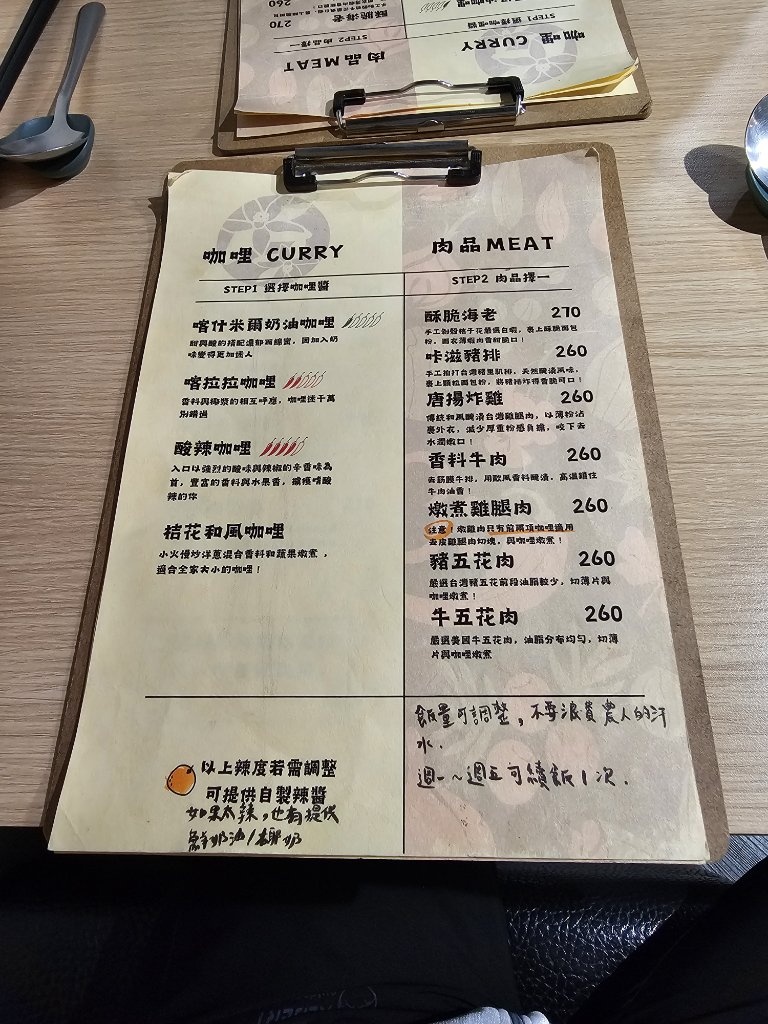 咖哩 CURRY
STEP1 選擇咖哩醬
喀什米爾奶油咖哩
甜與酸的搭配濃郁而綿密，因加入奶
味變得更加迷人
喀拉拉咖哩
香料與椰漿的相互呼應，咖哩迷千萬
別錯過
酸辣咖哩
入口以強烈的酸味與辣椒的辛香味為
首，豐富的香料與水果香，擄獲嗜酸
辣的你
桔花和風咖哩
小火慢炒洋蔥混合香料和蔬果燉煮，
適合全家大小的咖哩！
以上辣度若需調整
可提供自製辣醬
如果太辣，也有提供
鮮奶油/椰奶
肉品MEAT
STEP2 肉品擇一
酥脆海老 270
手工剝殼桔子花嚴選白蝦，裹上酥脆麵包
粉，面衣薄蝦肉香甜脆口！
咔滋豬排 260
手工拍打台灣豬里肌排，天然醃漬風味，
裹上顆粒麵包粉，將豬排炸得香脆可口！
唐揚炸雞 260
傳統和風醃漬台灣雞腿肉，以薄粉沾
裹外衣，減少厚重粉感負擔，咬下去
水潤嫩口！
香料牛肉 260
去筋膜牛排，用歐風香料醃漬，高溫鎖住
牛肉油香！
燉煮雞腿肉 260
注意！燉雞肉只有前兩項咖哩適用
去皮雞腿肉切塊，與咖哩燉煮！
豬五花肉 260
嚴選台灣豬五花前段油脂較少，切薄片與
咖哩燉煮！
牛五花肉 260
嚴選美國牛五花肉，油脂分布均勻，切薄
片與咖哩燉煮
飯量可調整，不要浪費農人的汗
水.
週一~週五可續飯1次.
咖哩 CURRY
STEP1 選擇咖哩醬
肉品MEAT
STEP2 肉品擇一
酥脆海老 270
260